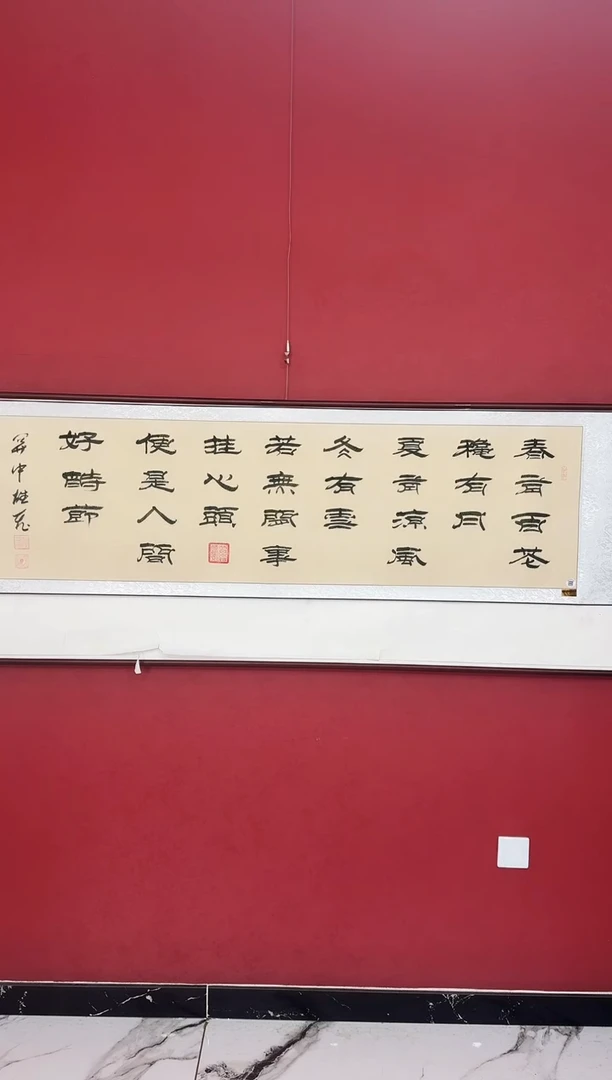 春有百花
穐有月
夏有涼風
冬有雪
若無閑事
挂心頭
便是人間
好時節